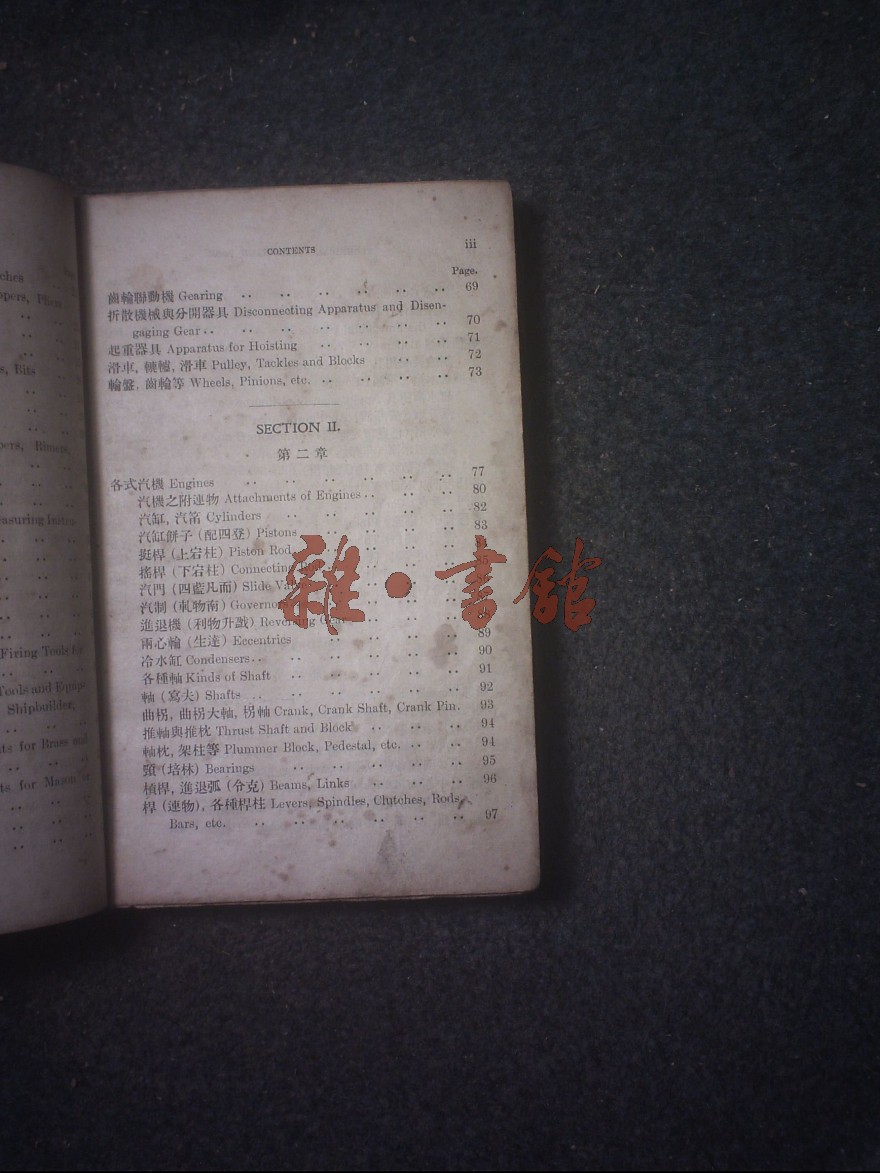 ches
ppers, Pliers
s, Bits
pers, Rimers,
easuring Instru-
Firing Tools for
Tools and Equip-
Shipbuilder.
nts for Brass and
ts for Mason or
CONTENTS iii
Page.
齒輪聯動機 Gearing .. .. .. .. .. .. 69
折散機械與分開器具 Disconnecting Apparatus and Disen-
gaging Gear .. .. .. .. .. .. .. 70
起重器具 Apparatus for Hoisting .. .. .. .. 71
滑車, 轆轤, 滑車 Pulley, Tackles and Blocks .. .. 72
輪盤, 齒輪等 Wheels, Pinions, etc. .. .. .. .. 73
SECTION II.
第二章
各式汽機 Engines .. .. .. .. .. .. 77
汽機之附連物 Attachments of Engines .. .. .. 80
汽缸, 汽筩 Cylinders .. .. .. .. .. 82
汽缸餅子 (配四登) Pistons .. .. .. .. 83
挺桿 (上宕柱) Piston Rod .. .. .. 84
搖桿 (下宕柱) Connecting Rod .. .. .. 85
汽門 (四藍凡而) Slide Valve
汽制 (乹物南) Governors
進退機 (利物升戤) Reversing Gear
兩心輪 (生達) Eccentrics .. .. .. .. 89
冷水缸 Condensers .. .. .. .. .. .. 90
各種軸 Kinds of Shaft .. .. .. .. .. 91
軸 (寫夫) Shafts .. .. .. .. .. .. 92
曲柺, 曲柺大軸, 柺軸 Crank, Crank Shaft, Crank Pin. 93
推軸與推枕 Thrust Shaft and Block .. .. .. 94
軸枕, 架柱等 Plummer Block, Pedestal, etc. .. .. 94
頸 (培林) Bearings .. .. .. .. .. 95
槓桿, 進退弧 (令克) Beams, Links .. .. .. 96
桿 (連物), 各種桿柱 Levers, Spindles, Clutches, Rods,
Bars, etc. .. .. .. .. .. .. 97
雜·書館